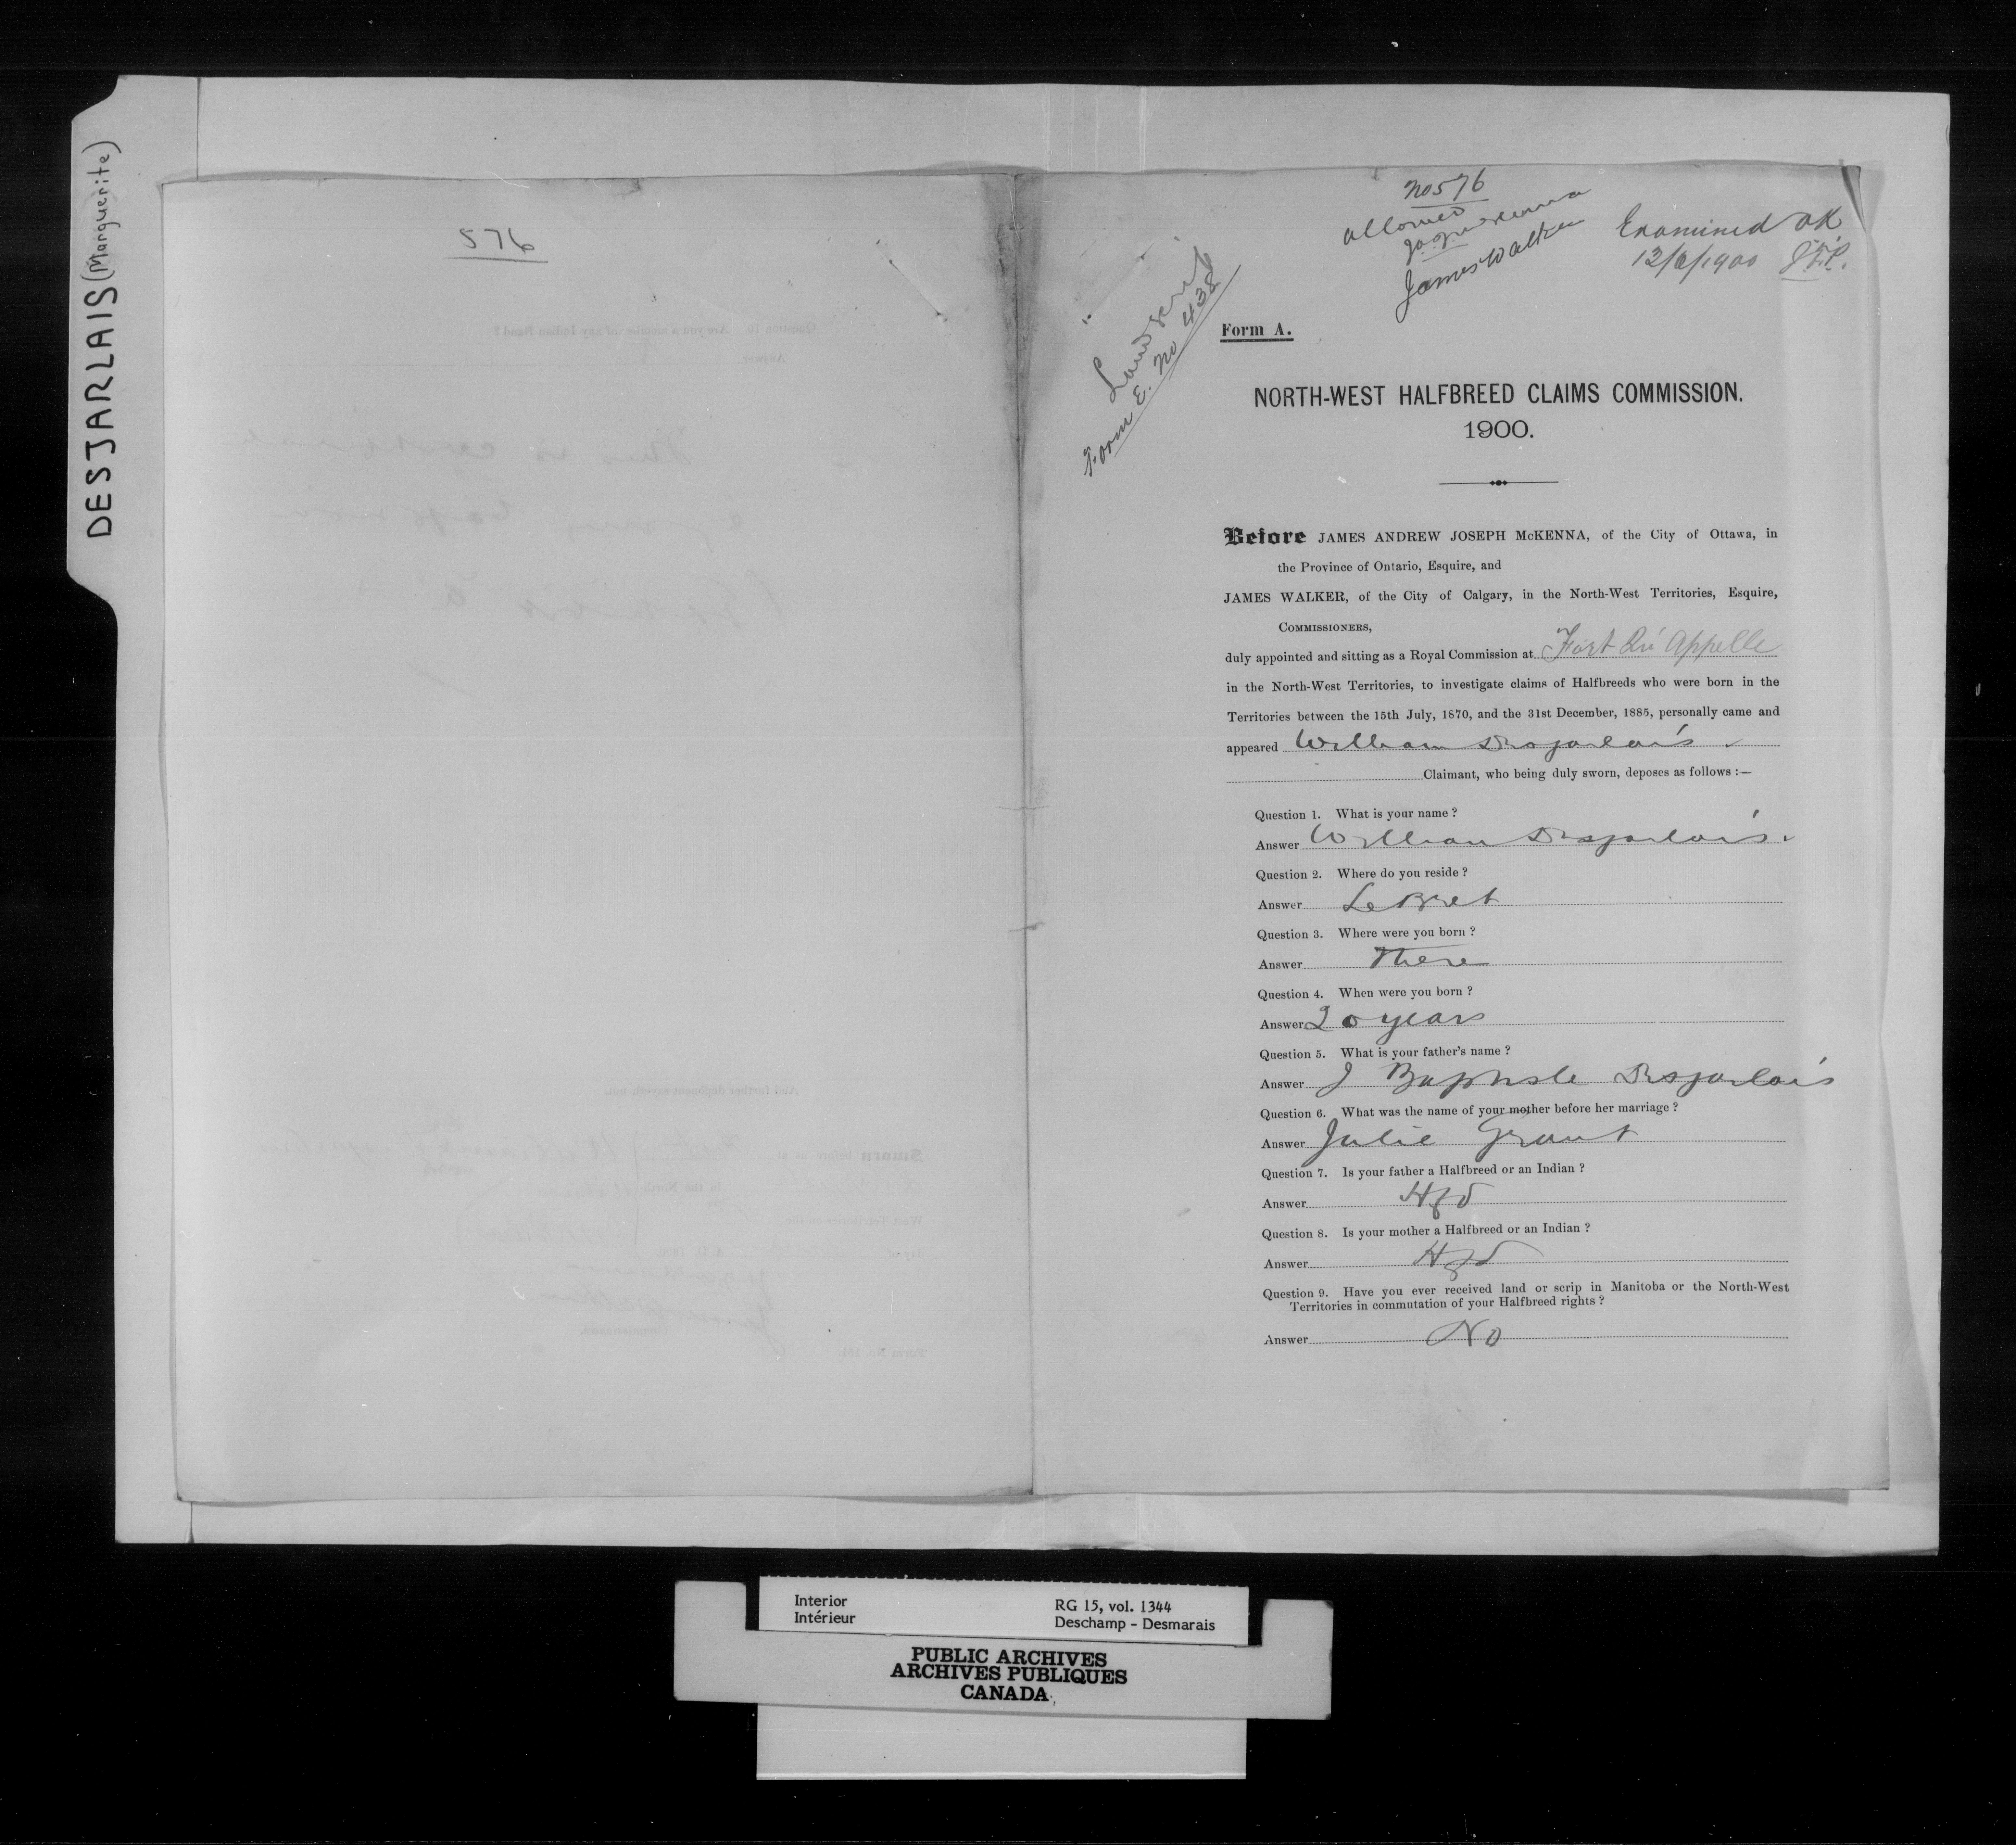 DESJARLAIS (Marguerite)
576
No 576
allowed
J.A.J. McKenna
James Walker
Examined OK
12/6/1900 J.F.P.
Land Scrip
Form E. No 438
Form A.
NORTH-WEST HALFBREED CLAIMS COMMISSION.
1900.
Before JAMES ANDREW JOSEPH McKENNA, of the City of Ottawa, in
the Province of Ontario, Esquire, and
JAMES WALKER, of the City of Calgary, in the North-West Territories, Esquire,
COMMISSIONERS,
duly appointed and sitting as a Royal Commission at Fort Qu'Appelle
in the North-West Territories, to investigate claims of Halfbreeds who were born in the
Territories between the 15th July, 1870, and the 31st December, 1885, personally came and
appeared William Desjarlais
Claimant, who being duly sworn, deposes as follows :—
Question 1. What is your name ?
Answer William Desjarlais
Question 2. Where do you reside ?
Answer LeBret
Question 3. Where were you born ?
Answer There
Question 4. When were you born ?
Answer 20 years
Question 5. What is your father's name ?
Answer J Baptiste Desjarlais
Question 6. What was the name of your mother before her marriage ?
Answer Julie Grant
Question 7. Is your father a Halfbreed or an Indian ?
Answer Hfd
Question 8. Is your mother a Halfbreed or an Indian ?
Answer Hfd
Question 9. Have you ever received land or scrip in Manitoba or the North-West
Territories in commutation of your Halfbreed rights ?
Answer No
Interior
Intérieur
RG 15, vol. 1344
Deschamp - Desmarais
PUBLIC ARCHIVES
ARCHIVES PUBLIQUES
CANADA